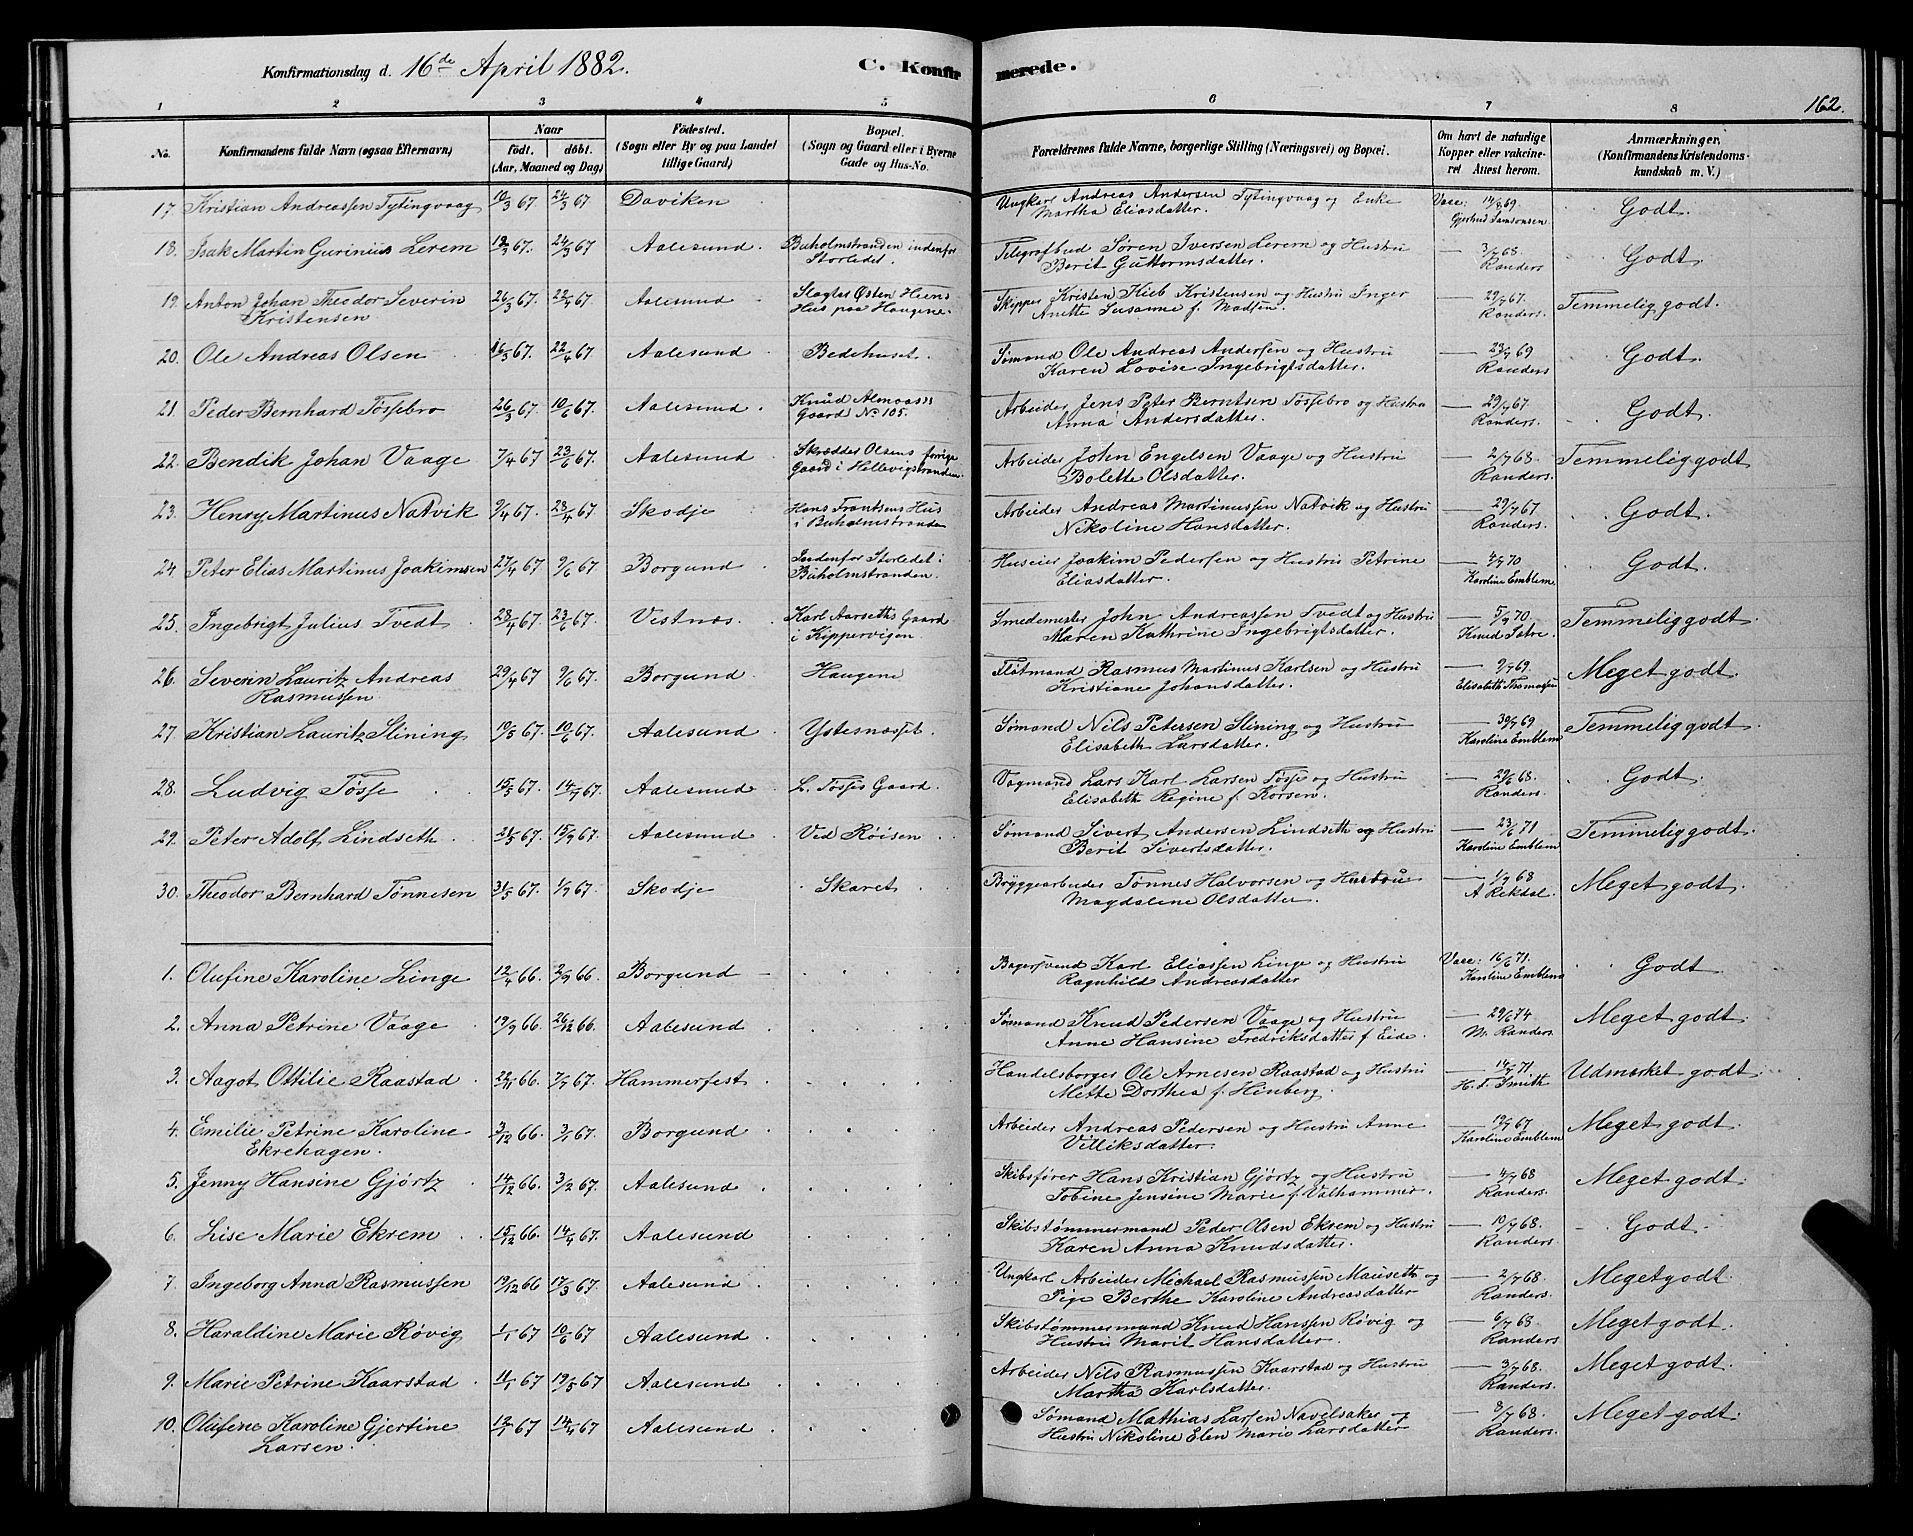 Konfirmationsdag d. 16de April 1882.
C. Konfirmerede.
162.
1 2 3 4 5 6 7 8
No. Konfirmandens fulde Navn (ogsaa Efternavn) Naar födt. döbt. (Aar, Maaned og Dag) Födested. (Sogn eller By og paa Landet tillige Gaard) Bopæl. (Sogn og Gaard eller i Byerne Gade og Hus-No. Forældrenes fulde Navne, borgerlige Stilling (Næringsvei) og Bopæl. Om havt de naturlige Kopper eller vakcineret. Attest herom. Anmærkninger. (Konfirmandens Kristendomskundskab m. V.)
17. Kristian Andreassen Tytingvaag 10/3 67 24/3 67 Daviken Ungkarl Andreas Andersen Tytingvaag og Enke Vacc: 14/8 69 Godt.
Martha Eliasdatter. Gjertrud Samsonsen
18. Isak Martin Gurinius Lerem 18/3 67. 24/3 67 Aalesund. Buholmstranden indenfor Telegrafbud Søren Iversen Lerem og Hustru — 3/7 68. Godt.
Storledet. Berit Guttormsdatter. Randers
19. Anton Johan Theodor Severin 26/3 67. 22/4 67. Aalesund Slagter Østen Hiens Skipper Kristen Kieb Kristensen og Hustru Inger — 29/7 67. Temmelig godt.
Kristensen Hus paa Haugene. Anette Susanne f. Madsen. Randers.
20. Ole Andreas Olsen 16/3 67. 22/4 67. Aalesund Bedehuset. Sømand Ole Andreas Andersen og Hustru — 23/7 69 Godt.
Karen Lovise Ingebrigtsdatter. Randers
21. Peder Bernhard Tøssebro 26/3 67. 10/6 67. Aalesund. Knud Almaas's Arbeider Jens Peter Berntsen Tøssebro og Hustru — 29/7 67. Godt.
Gaard No 105. Anna Andersdatter. Randers.
22. Bendik Johan Vaage 7/4 67 23/6 67. Aalesund Skrædder Olsens forrige Arbeider John Engelsen Vaage og Hustru — 2/7 68. Temmelig godt
Gaard i Hellevigstranden Bolette Olsdatter. Randers.
23. Henry Martinus Natvik 9/4 67. 23/4 67. Skodje Hans Frantsens Hus Arbeider Andreas Martinussen Natvik og Hustru — 29/7 67 Godt.
i Buholmstrande Nikoline Hansdatter. Randers.
24. Peter Elias Martinus Joakimsen 27/4 67 9/6 67. Borgund Indenfor Storledet i Huseier Joakim Pedersen og Hustru Petrine — 4/7 70 Godt.
Buholmstranden. Eliasdatter. Karoline Emblem
25. Ingebrigt Julius Tvedt 28/4 67. 23/6 67. Vestnæs. Karl Aarseths Gaard Smedemester John Andreassen Tvedt og Hustru — 5/9 70. Temmelig godt.
i Kippervigen Maren Kathrine Ingebrigtsdatter. Knud Sætre.
26. Severin Lauritz Andreas 29/4 67 9/6 67. Borgund. Haugene Flotmand Rasmus Martinus Karlsen og Hustru — 9/7 69. Meget godt.
Rasmussen Kristiane Johansdatter. Elisabeth Thomassen
27. Kristian Lauritz Slining 19/5 67. 10/6 67. Aalesund Ystenæsset. Sømand Nils Petersen Slining og Hustru — 30/7 69 Temmelig godt.
Elisabeth Larsdatter. Karoline Emblem
28. Ludvig Tøsse 15/5 67. 14/7 67. Aalesund L. Tøsses Gaard. Vogmand Lars Karl Larsen Tøsse og Hustru — 29/6 68. Godt.
Elisabeth Regine f. Korsen. Randers
29. Peter Adolf Lindseth. 21/5 67. 15/9 67. Aalesund Ved Røisen Sømand Sivert Andersen Lindseth og Hustru — 23/6 71 Temmelig godt.
Berit Sivertsdatter. Karoline Emblem
30. Theodor Bernhard Tønnesen 31/5 67. 1/9 67. Skodje Skaret Bryggearbeider Tønnes Halvorsen og Hustru — 1/9 68 Meget godt.
Magdalene Olsdatter. A Rekdal.
1. Olufine Karoline Linge 12/4 66. 2/9 66. Borgund Bagersvend Karl Eliassen Linge og Hustru Vacc: 16/6 71. Godt
Ragnhild Andreasdatter Karoline Emblem
2. Anna Petrine Vaage 19/9 66. 26/12 66. Aalesund Sømand Knud Pedersen Vaage og Hustru — 29/6 74 Meget godt.
Anne Hansine Fredriksdatter f Eide. M. Randers
3. Aagot Ottilie Raastad 22/11 66. 7/7 67. Hammerfest Handelsborger Ole Arnesen Raastad og Hustru — 14/7 71. Udmærket godt
Mette Dorthea f. Hinberg H. T. Smith
4. Emilie Petrine Karoline 3/12 66. 3/1 67. Borgund Arbeider Andreas Pedersen og Hustru Anne — 19/7 67 Meget godt.
Ekrehagen. Villiksdatter. Karoline Emblem
5. Jenny Hansine Gjørtz 14/12 66. 3/2 67. Aalesund Skibsfører Hans Kristian Gjørtz og Hustru — 4/7 68 Meget godt.
Tobine Jensine Marie f. Valhammer. Randers.
6. Lise Marie Ekrem 15/12 66. 14/4 67. Aalesund Skibstømmermand Peder Olsen Ekrem og Hustru — 10/7 68. Godt
Karen Anna Knudsdatter. Randers.
7. Ingeborg Anna Rasmussen 19/12 66 17/3 67. Aalesund Ungkarl Arbeider Michael Rasmussen Mauseth og — 2/7 68. Meget godt.
Pige Berthe Karoline Andreasdatter Randers.
8. Haraldine Marie Røvig 1/1 67 10/6 67 Aalesund Skibstømmermand Knud Hanssen Røvig og — 6/7 68 Meget godt.
Hustru Marit Hansdatter. Randers
9. Marie Petrine Kaarstad 11/1 67 19/5 67 Aalesund Arbeider Nils Rasmussen Kaarstad og Hustru — 3/7 68. Meget godt.
Martha Karlsdatter. Randers.
10. Olufine Karoline Gjertine 12/1 67 14/4 67 Aalesund Sømand Mathias Larsen Navelsaker og — 8/7 68. Meget godt.
Larsen. Hustru Nikoline Elen Marie Larsdatter Randers.